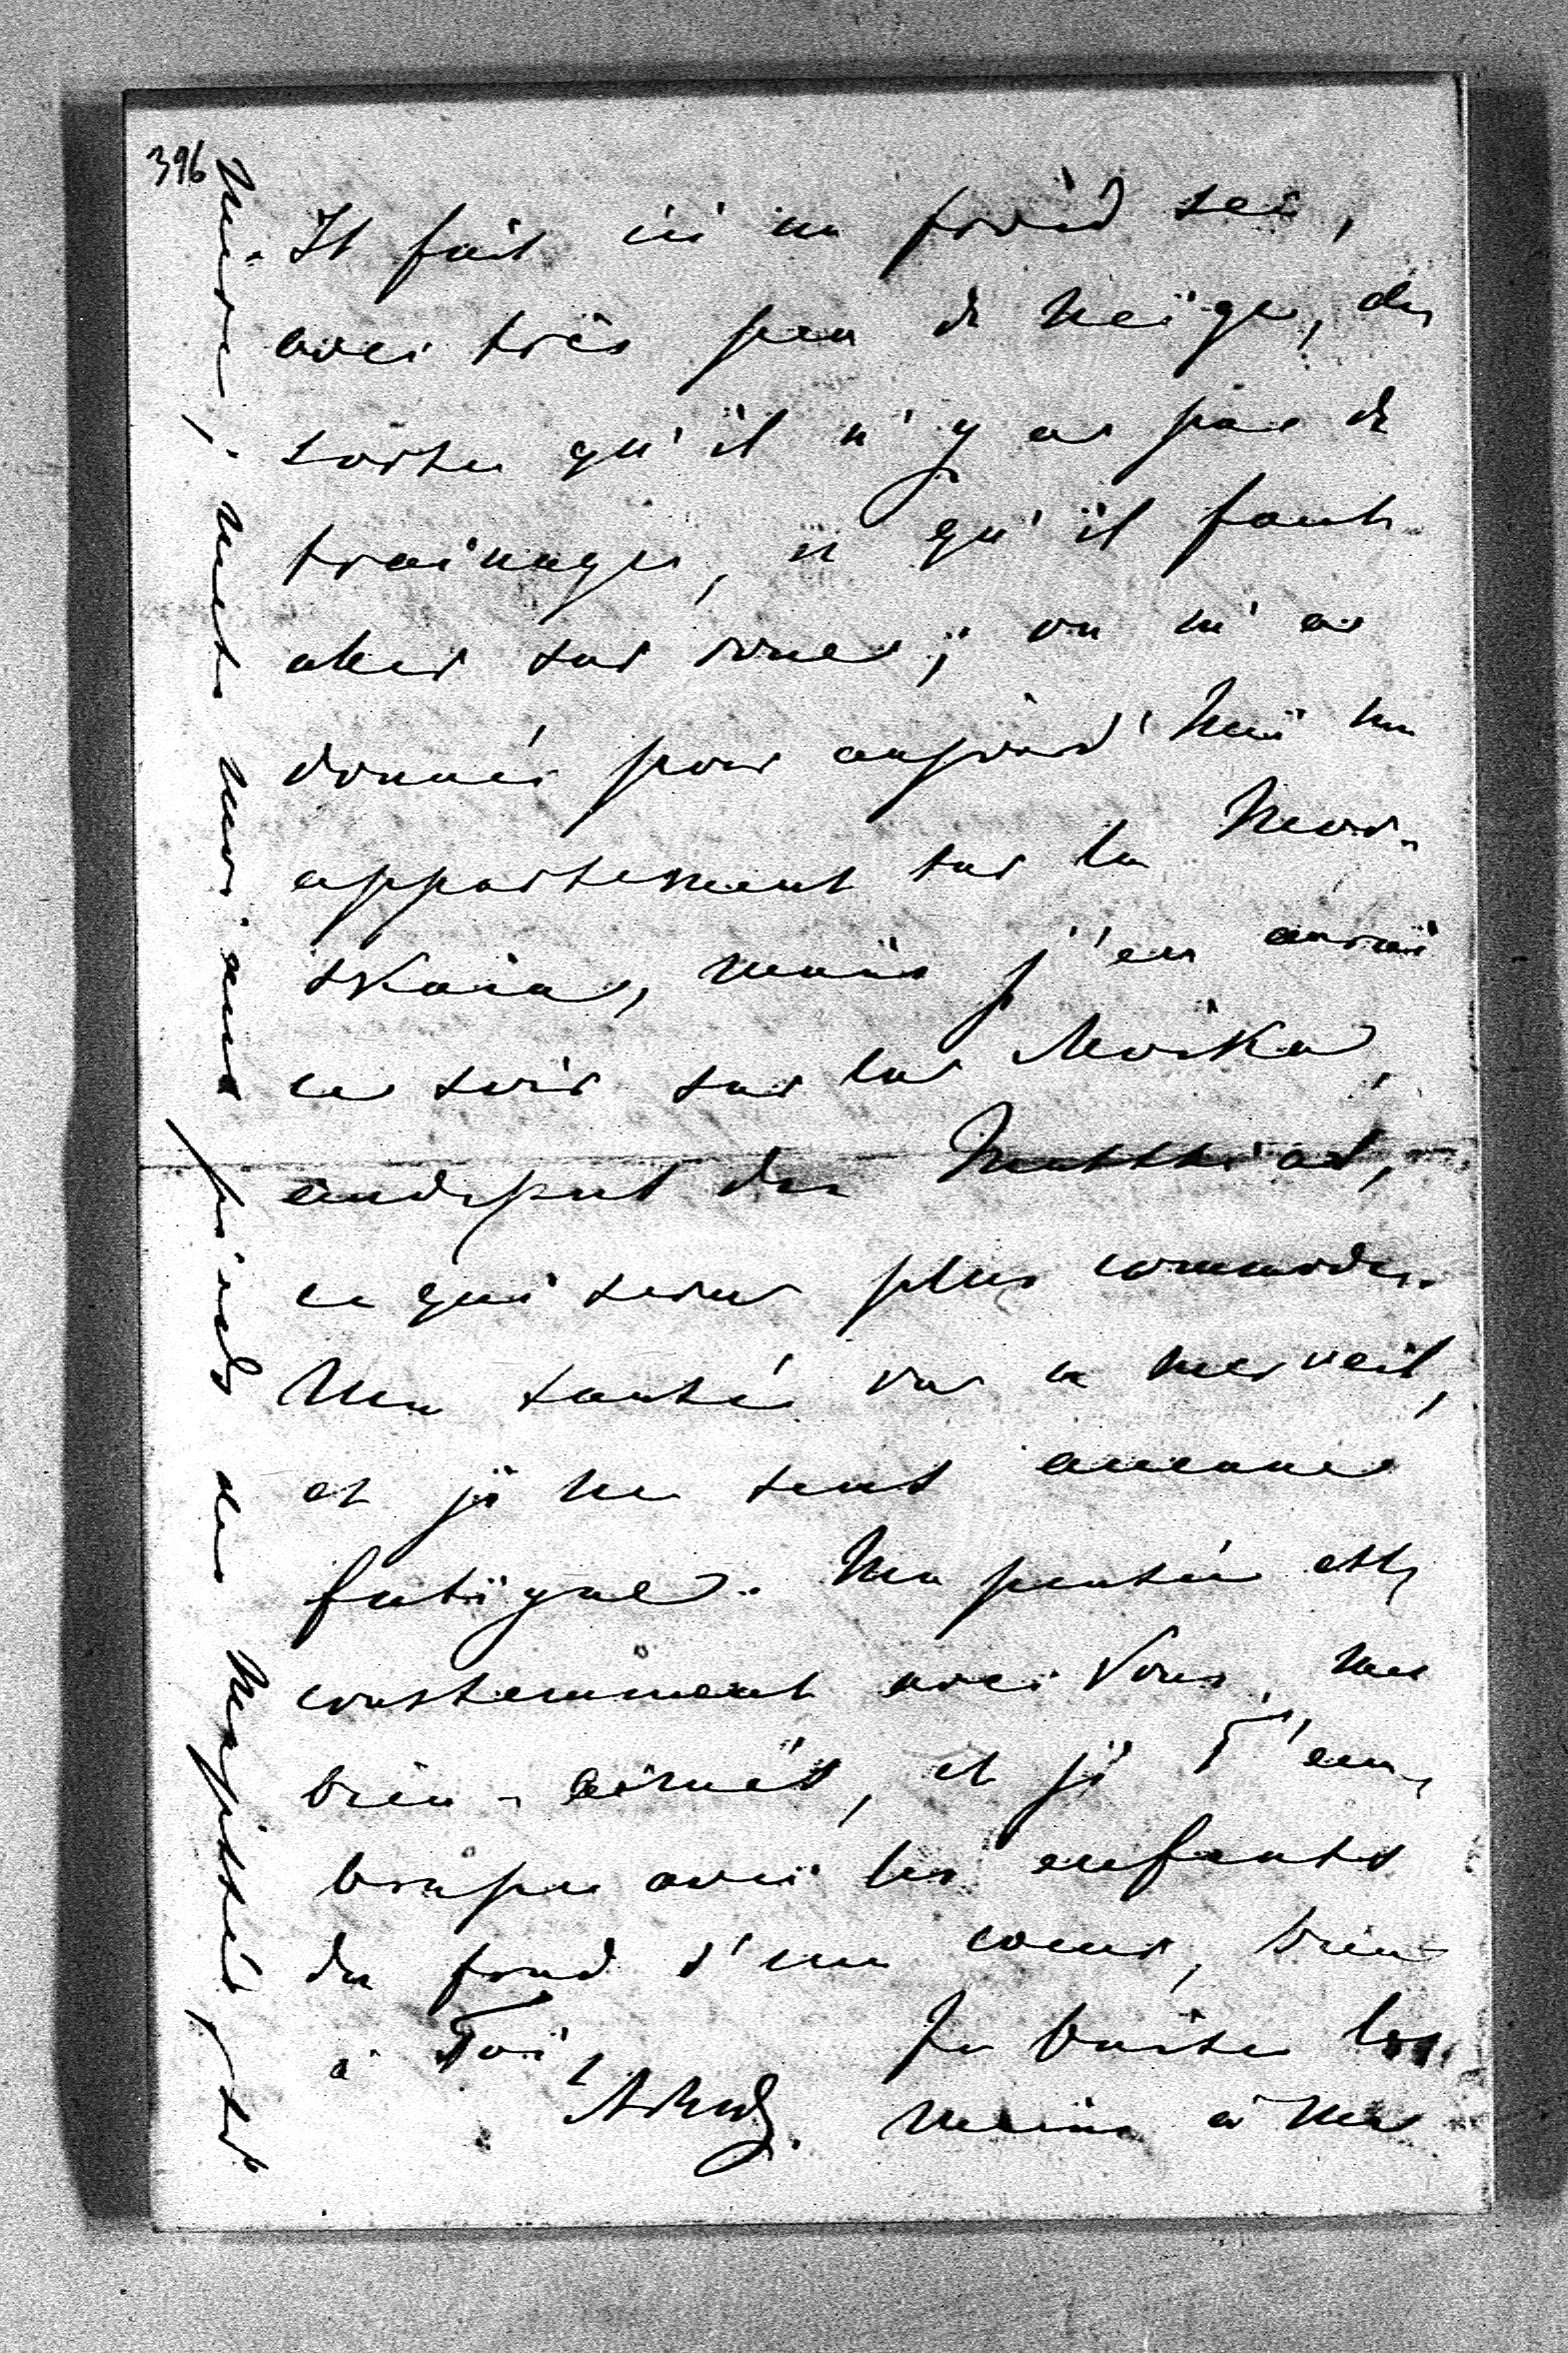 396
Il fait ici un froid sec,
avec très peu de neige, de
sorte qu'il n'y a pas de
trainage, et qu'il faut
aller sur roues; on m'a
donné pour aujourd'hui un
appartement sur la Mor-
skaia, mais j'en aurai
ce soir sur la Moïka,
ce qui sera plus commode.
Ma santé va à merveil,
et je ne sens aucune
fatigue. Ma pensée est
constemment avec Vous, mes
bien-aimés, et je T'em-
brasse avec les enfants
du fond d'un coeur, bien
à Toi,
Je baise les
mains à Ma
Mère, met moi aux pieds de Majesté,